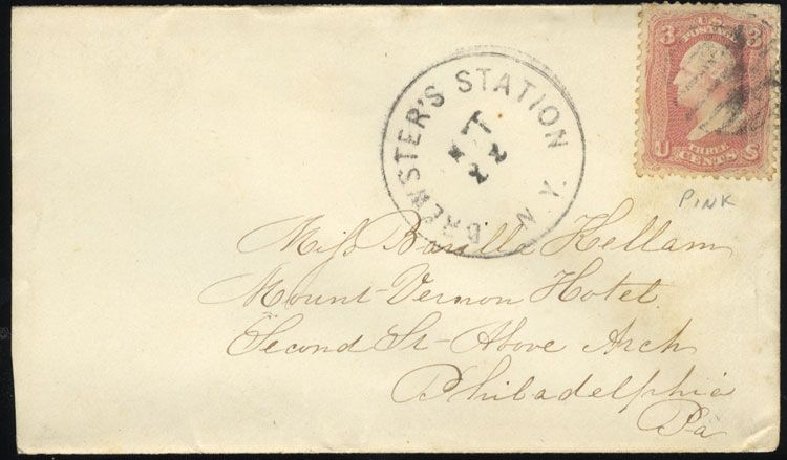 3 U.S. 3
POSTAGE
U THREE S
CENTS
PINK
BREWSTER'S STATION N.Y.
22
Miss Hellam
Mount-Vernon Hotel.
Second St-Above Arch
Philadelphia
Pa